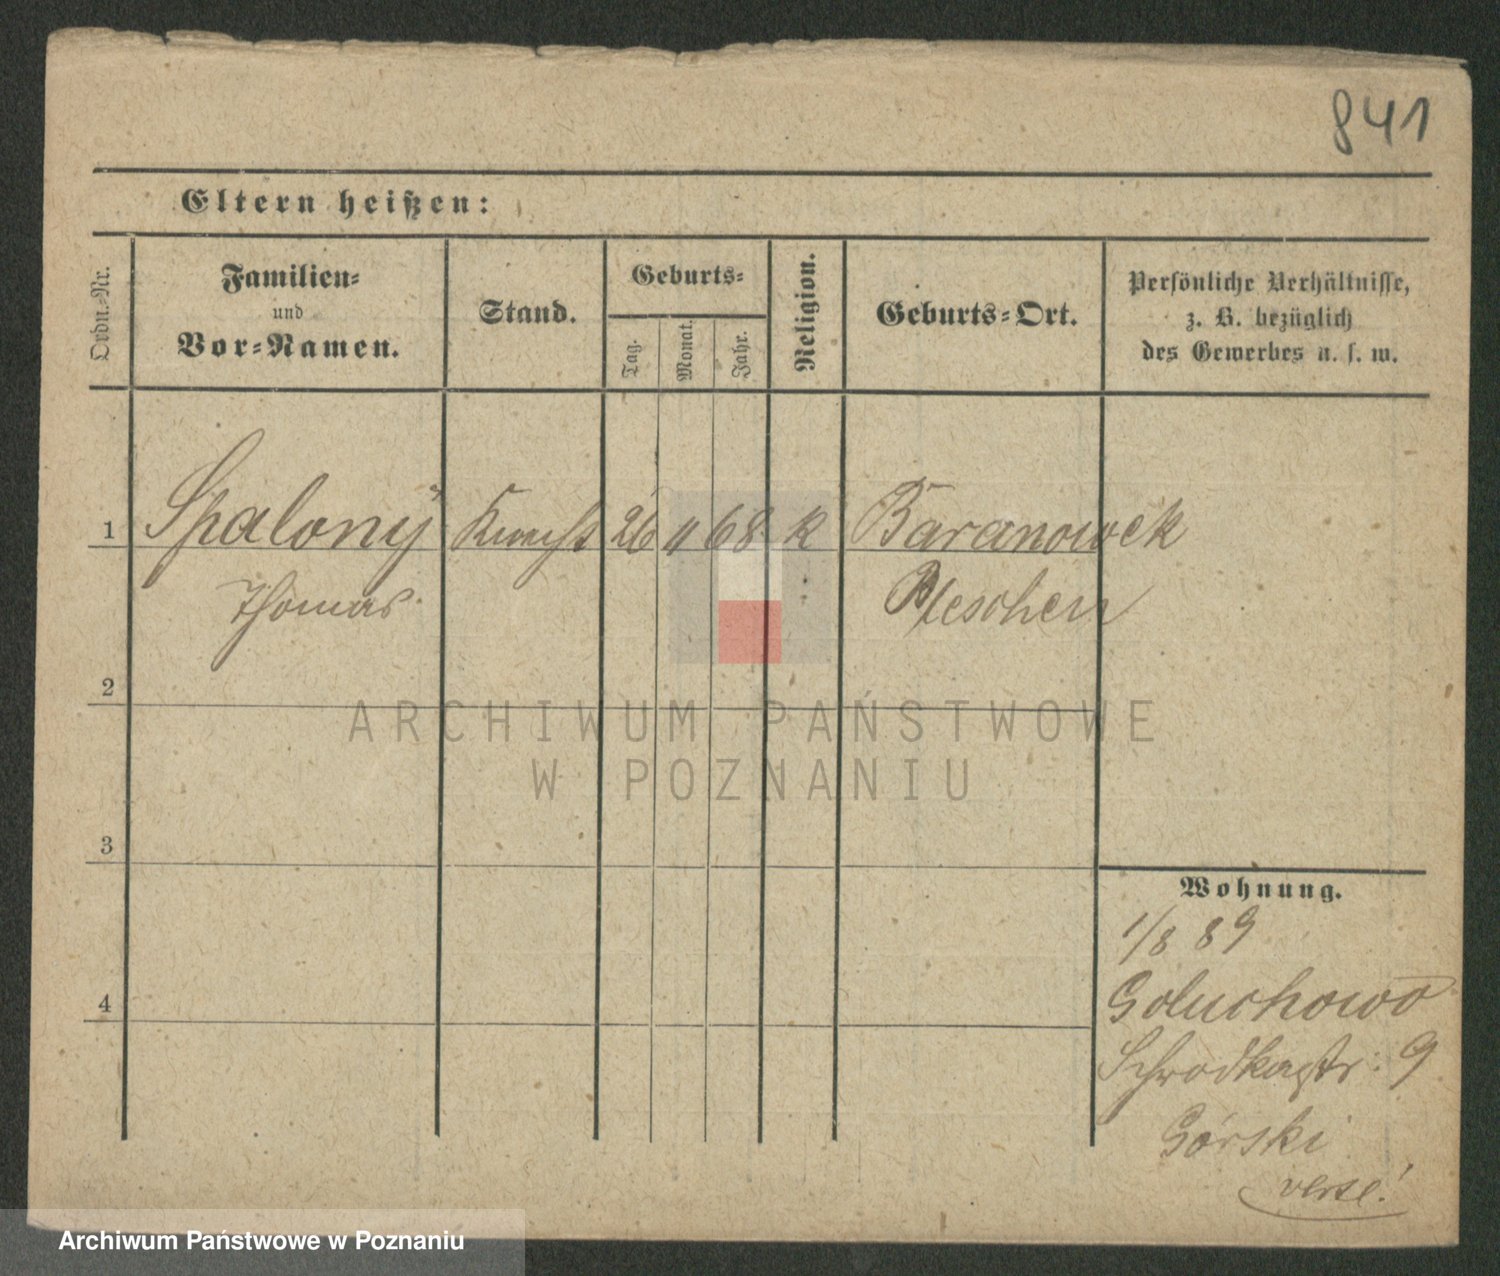 841
Eltern heißen:
Ordn.-Nr.
Familien-
und
Vor-Namen.
Stand.
Geburts-
Tag.
Monat.
Jahr.
Religion.
Geburts-Ort.
Persönliche Verhältnisse,
z. B. bezüglich
des Gewerbes u. s. w.
1 Spalony Knecht 26 11 68 k Baranowek
Thomas Pleschen
2
3
4
Wohnung.
1/8 89
Goluchowo
Schrodkastr: 9
Górski
verse!
ARCHIWUM PAŃSTWOWE
W POZNANIU
Archiwum Państwowe w Poznaniu